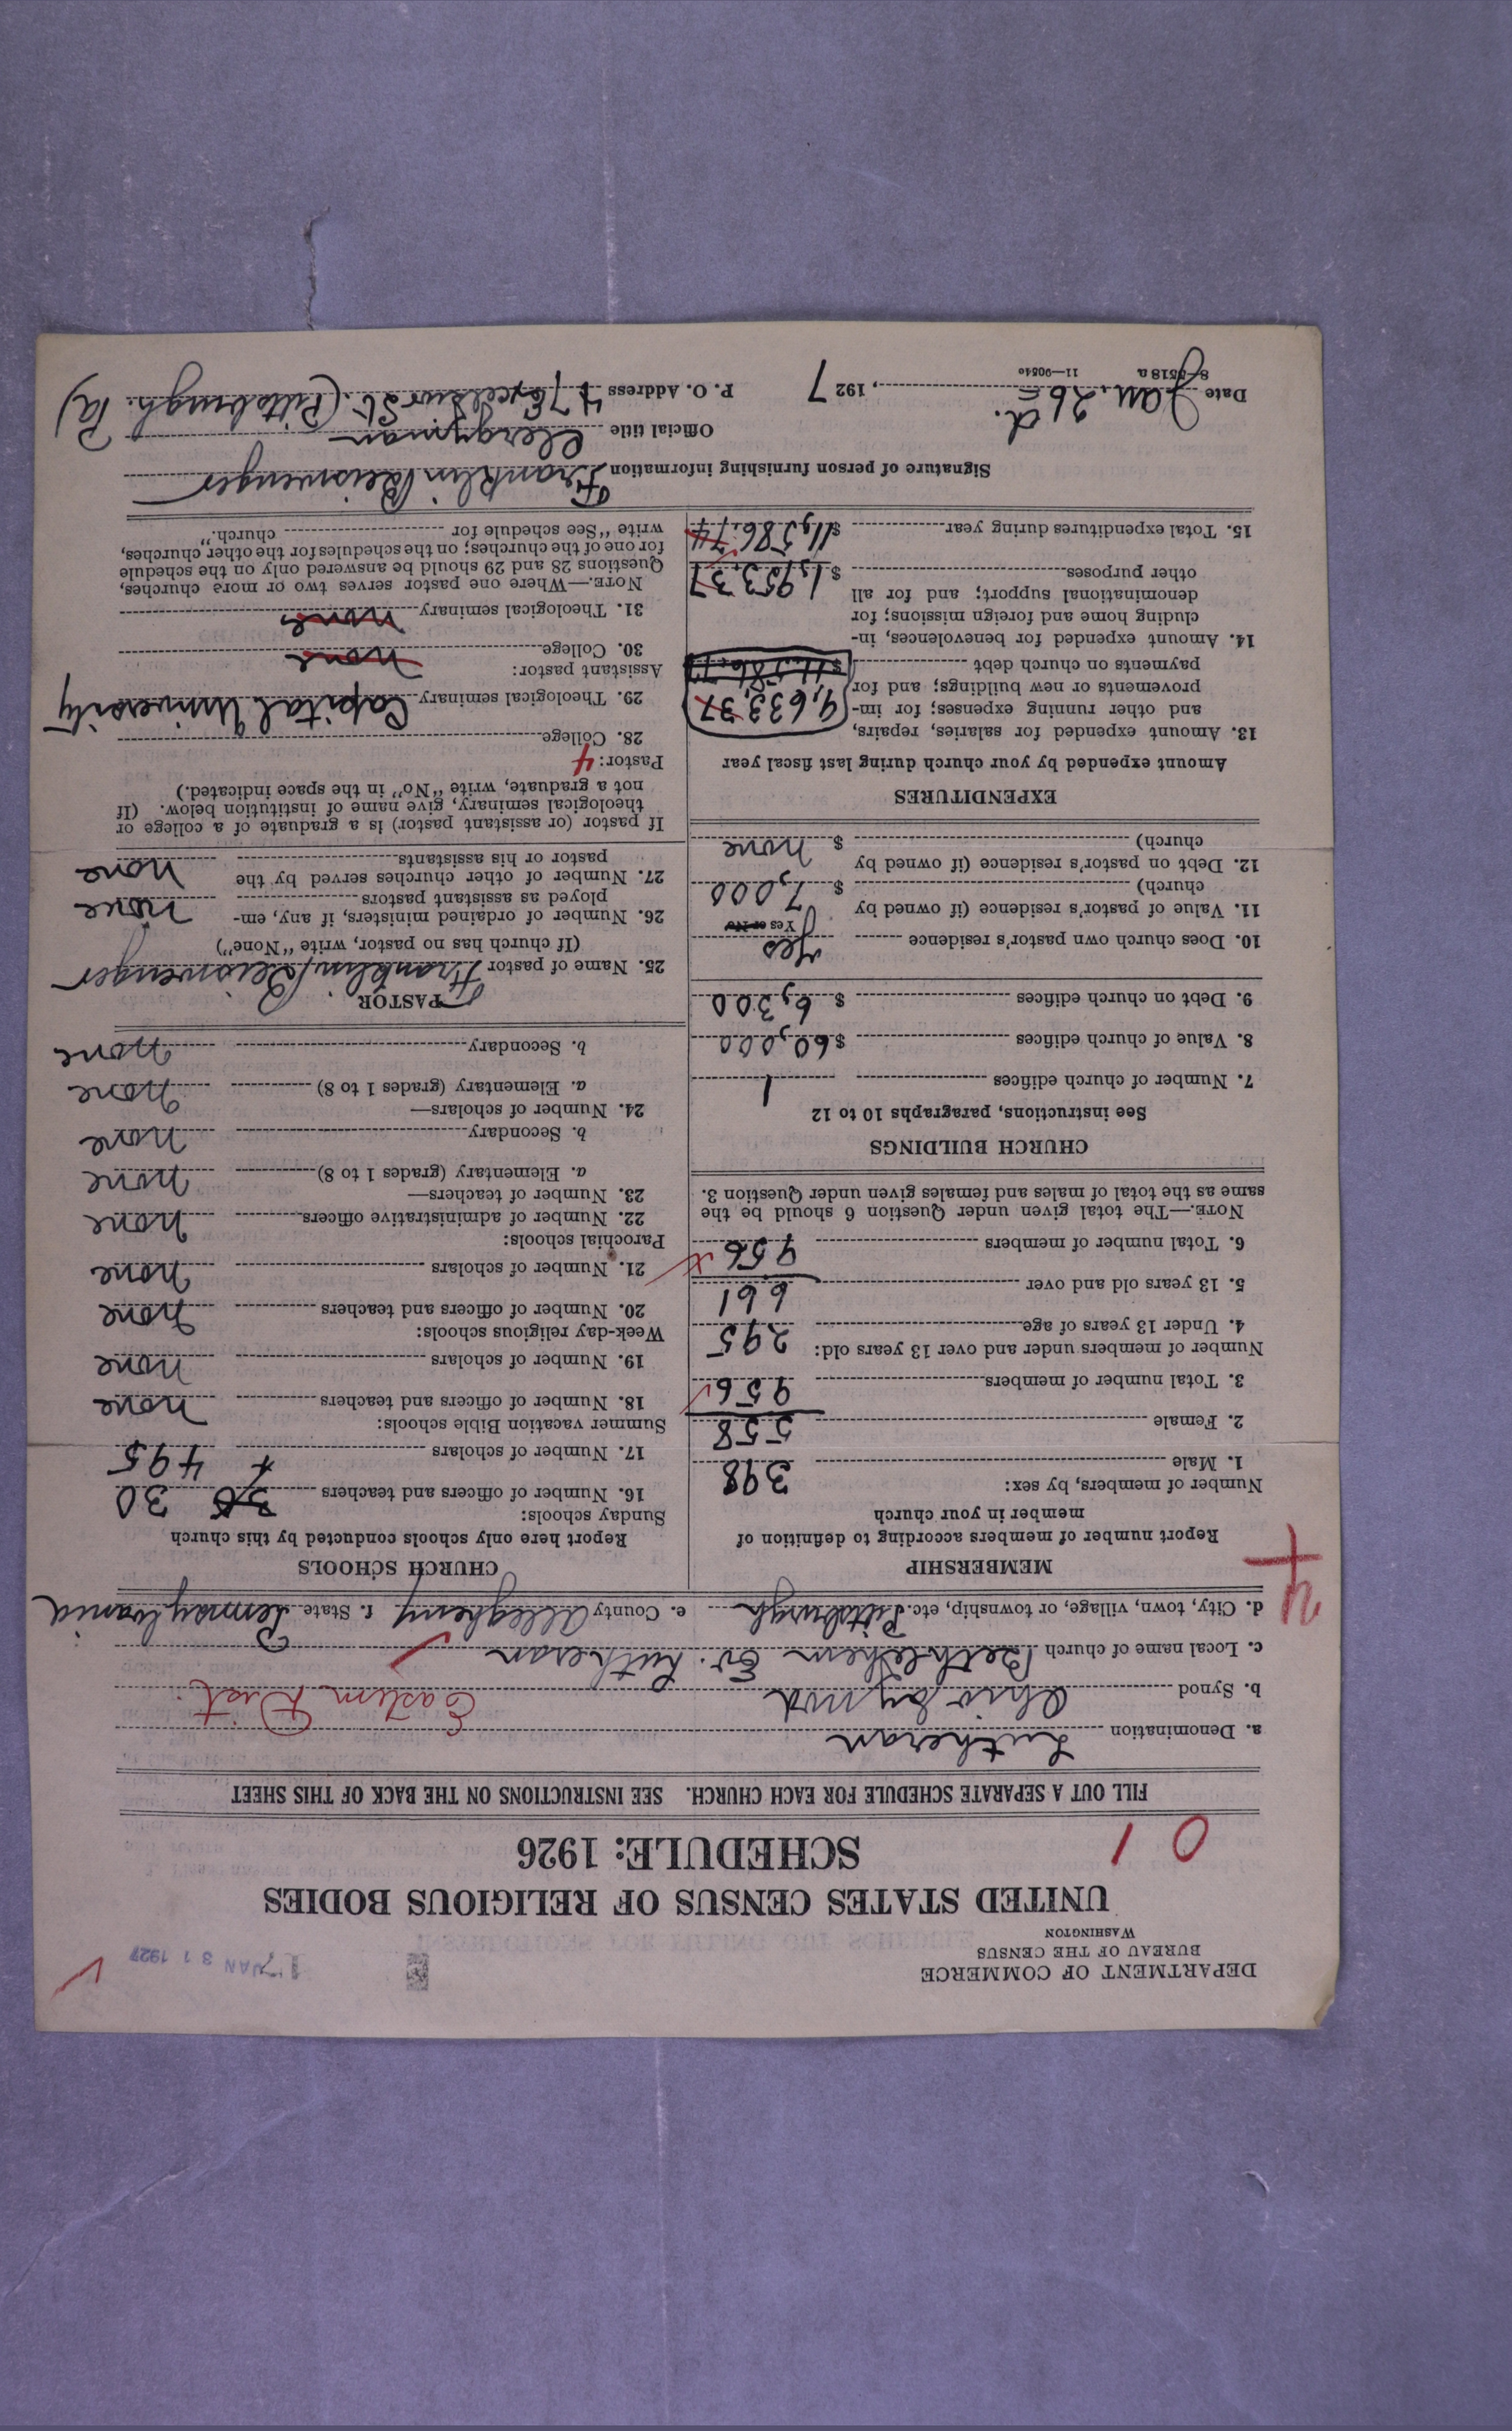 DEPARTMENT OF COMMERCE
BUREAU OF THE CENSUS
WASHINGTON
JAN 31 1927
UNITED STATES CENSUS OF RELIGIOUS BODIES
SCHEDULE: 1926
0 1
FILL OUT A SEPARATE SCHEDULE FOR EACH CHURCH. SEE INSTRUCTIONS ON THE BACK OF THIS SHEET
a. Denomination Lutheran
b. Synod Ohio Synod Eastern Dist.
c. Local name of church Bethlehem Ev. Lutheran
d. City, town, village, or township, etc. Pittsburgh e. County Allegheny f. State Pennsylvania
4
MEMBERSHIP
Report number of members according to definition of
member in your church
Number of members, by sex:
1. Male 398
2. Female 558
3. Total number of members 956
Number of members under and over 13 years old:
4. Under 13 years of age 295
5. 13 years old and over 661
6. Total number of members 956
NOTE.—The total given under Question 6 should be the
same as the total of males and females given under Question 3.
CHURCH BUILDINGS
See instructions, paragraphs 10 to 12
7. Number of church edifices 1
8. Value of church edifices $60,000
9. Debt on church edifices $ 6,300
10. Does church own pastor's residence yes
Yes or No
11. Value of pastor's residence (if owned by
church) $ 7,000
12. Debt on pastor's residence (if owned by
church) $ none
EXPENDITURES
Amount expended by your church during last fiscal year
13. Amount expended for salaries, repairs,
and other running expenses; for im-
provements or new buildings; and for
payments on church debt 9,633.37
14. Amount expended for benevolences, in-
cluding home and foreign missions; for
denominational support; and for all
other purposes $ 1,953.37
15. Total expenditures during year $11,586.74
CHURCH SCHOOLS
Report here only schools conducted by this church
Sunday schools:
16. Number of officers and teachers 30
17. Number of scholars 495
Summer vacation Bible schools:
18. Number of officers and teachers none
19. Number of scholars none
Week-day religious schools:
20. Number of officers and teachers none
21. Number of scholars none
Parochial schools:
22. Number of administrative officers none
23. Number of teachers—
a. Elementary (grades 1 to 8) none
b. Secondary none
24. Number of scholars—
a. Elementary (grades 1 to 8) none
b. Secondary none
PASTOR
25. Name of pastor Franklin Reiswenger
(If church has no pastor, write "None")
26. Number of ordained ministers, if any, em-
ployed as assistant pastors none
27. Number of other churches served by the
pastor or his assistants none
If pastor (or assistant pastor) is a graduate of a college or
theological seminary, give name of institution below. (If
not a graduate, write "No" in the space indicated.)
Pastor: 4
28. College
29. Theological seminary Capital University
Assistant pastor:
30. College none
31. Theological seminary none
NOTE.—Where one pastor serves two or more churches,
Questions 28 and 29 should be answered only on the schedule
for one of the churches; on the schedules for the other churches,
write "See schedule for church."
Signature of person furnishing information Franklin Reiswenger
Official title Clergyman
Date Jan. 26, 1927 P. O. Address 47 Excelsior St. (Pittsburgh. Pa)
8-5518 a 11—90540